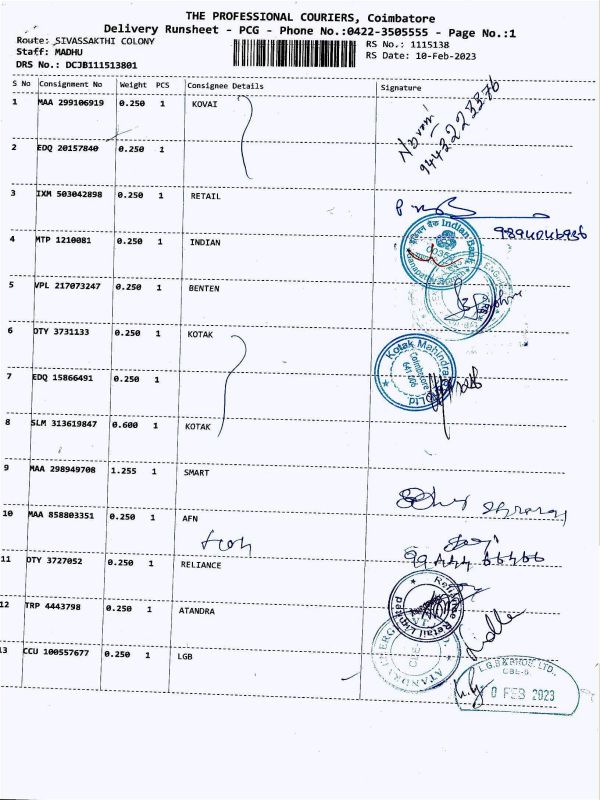 THE PROFESSIONAL COURIERS, Coimbatore
Delivery Runsheet - PCG - Phone No.:0422-3505555 - Page No.:1
Route: SIVASSAKTHI COLONY
RS No.: 1115138
Staff: MADHU
RS Date: 10-Feb-2023
DRS No.: DCJB111513801
S No Consignment No Weight PCS Consignee Details Signature
1 MAA 299106919 0.250 1 KOVAI
9443223376
2 EDQ 20157840 0.250 1
3 IXM 503042898 0.250 1 RETAIL
4 MTP 1210081 0.250 1 INDIAN
इंडियन बैंक Indian Bank
5 VPL 217073247 0.250 1 BENTEN
6 OTY 3731133 0.250 1 KOTAK
Kotak Mahindra Ltd
Coimbatore
641 006
7 EDQ 15866491 0.250 1
8 SLM 313619847 0.600 1 KOTAK
9 MAA 298949708 1.255 1 SMART
10 MAA 858803351 0.250 1 AFN
11 OTY 3727052 0.250 1 RELIANCE
Reliance Retail Limited
12 TRP 4443798 0.250 1 ATANDRA
ATANDRA ENERG
13 CCU 100557677 0.250 1 LGB
L.G.B & BROS. LTD.,
CBE-6.
0 FEB 2023